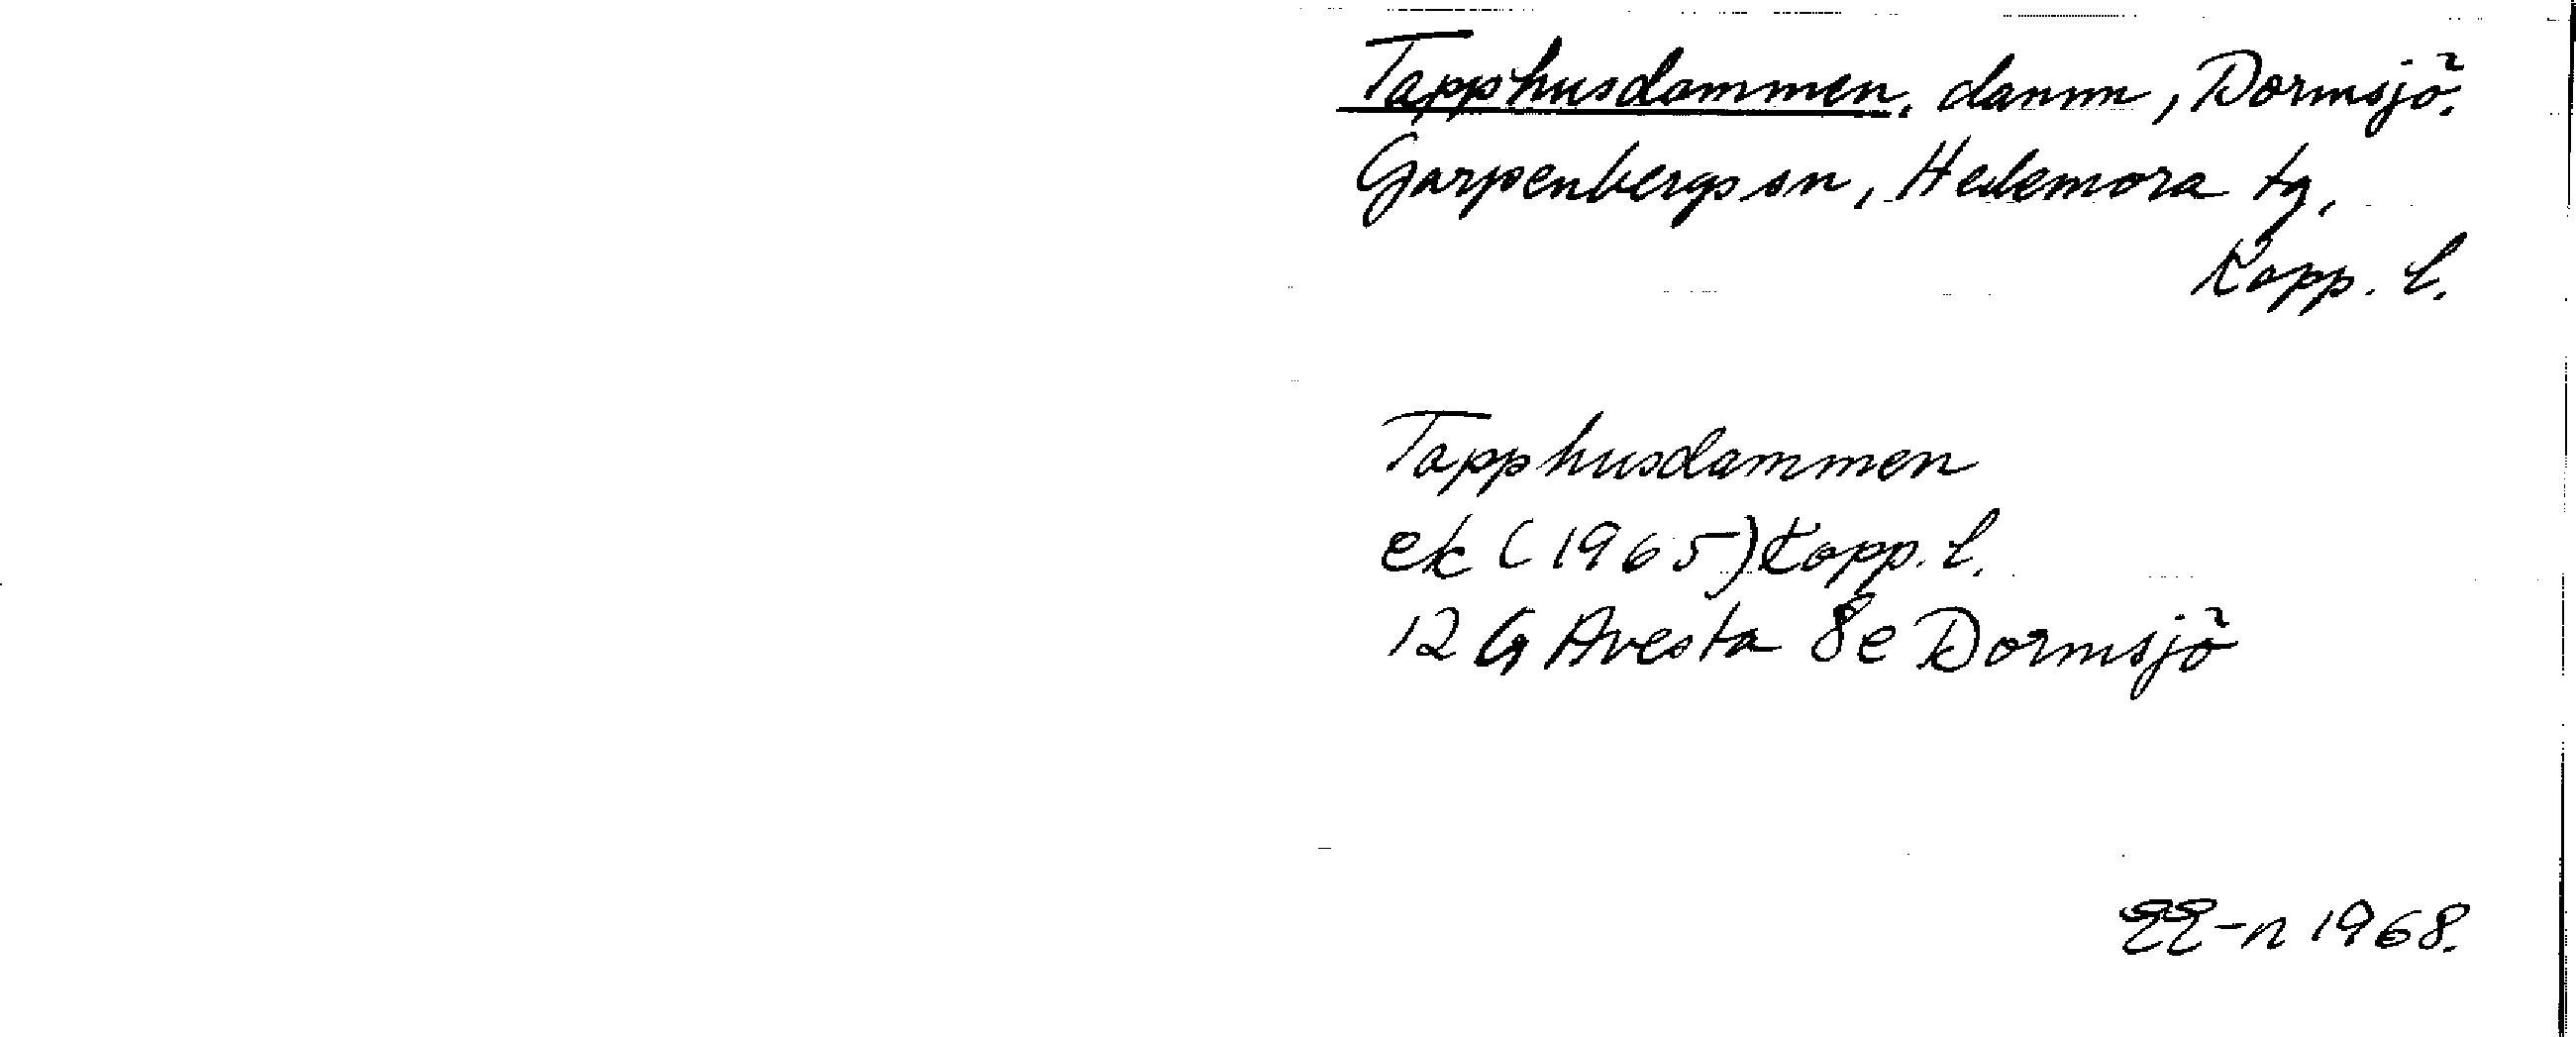 Tapphusdammen, damm, Dormsjö.
Garpenbergs sn, Hedemora tg,
Kopp. l.
Tapphusdammen
ek (1965) Kopp. l.
12 G Avesta 8e Dormsjö
EE-n 1968.